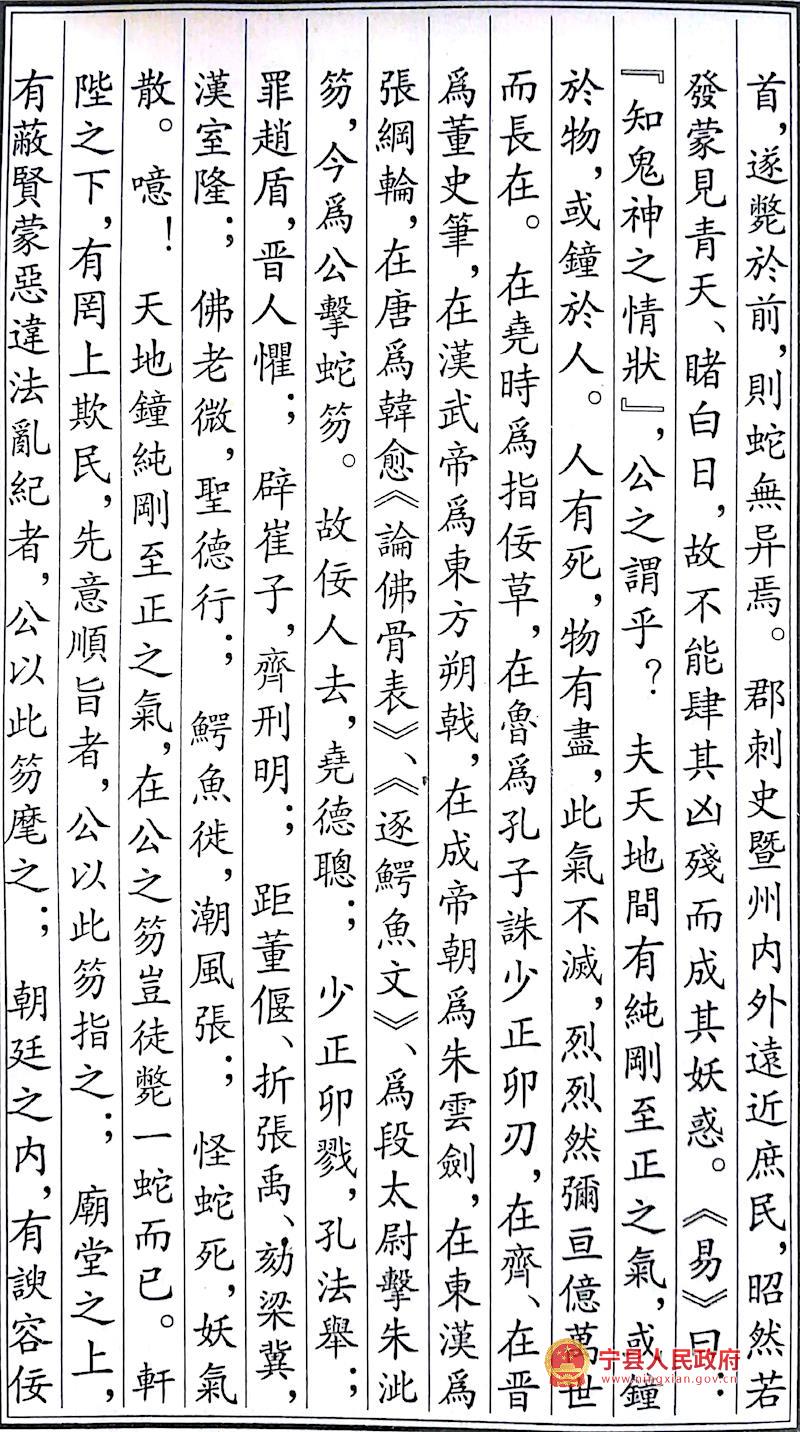 首，遂斃於前，則蛇無异焉。郡刺史暨州内外遠近庶民，昭然若
發蒙見青天、睹白日，故不能肆其凶殘而成其妖惑。《易》曰：
『知鬼神之情狀』，公之謂乎？夫天地間有純剛至正之氣，或鐘
於物，或鐘於人。人有死，物有盡，此氣不滅，烈烈然彌亘億萬世
而長在。在堯時爲指佞草，在魯爲孔子誅少正卯刃，在齊、在晋
爲董史筆，在漢武帝爲東方朔戟，在成帝朝爲朱雲劍，在東漢爲
張綱輪，在唐爲韓愈《論佛骨表》、《逐鰐魚文》、爲段太尉擊朱泚
笏，今爲公擊蛇笏。故佞人去，堯德聰；少正卯戮，孔法舉；
罪趙盾，晋人懼；辟崔子，齊刑明；距董偃、折張禹、劾梁冀，
漢室隆；佛老微，聖德行；鰐魚徙，潮風張；怪蛇死，妖氣
散。噫！天地鐘純剛至正之氣，在公之笏豈徒斃一蛇而已。軒
陛之下，有罔上欺民，先意順旨者，公以此笏指之；廟堂之上，
有蔽賢蒙惡違法亂紀者，公以此笏麾之；朝廷之内，有諛容佞
宁县人民政府
www.ningxian.gov.cn